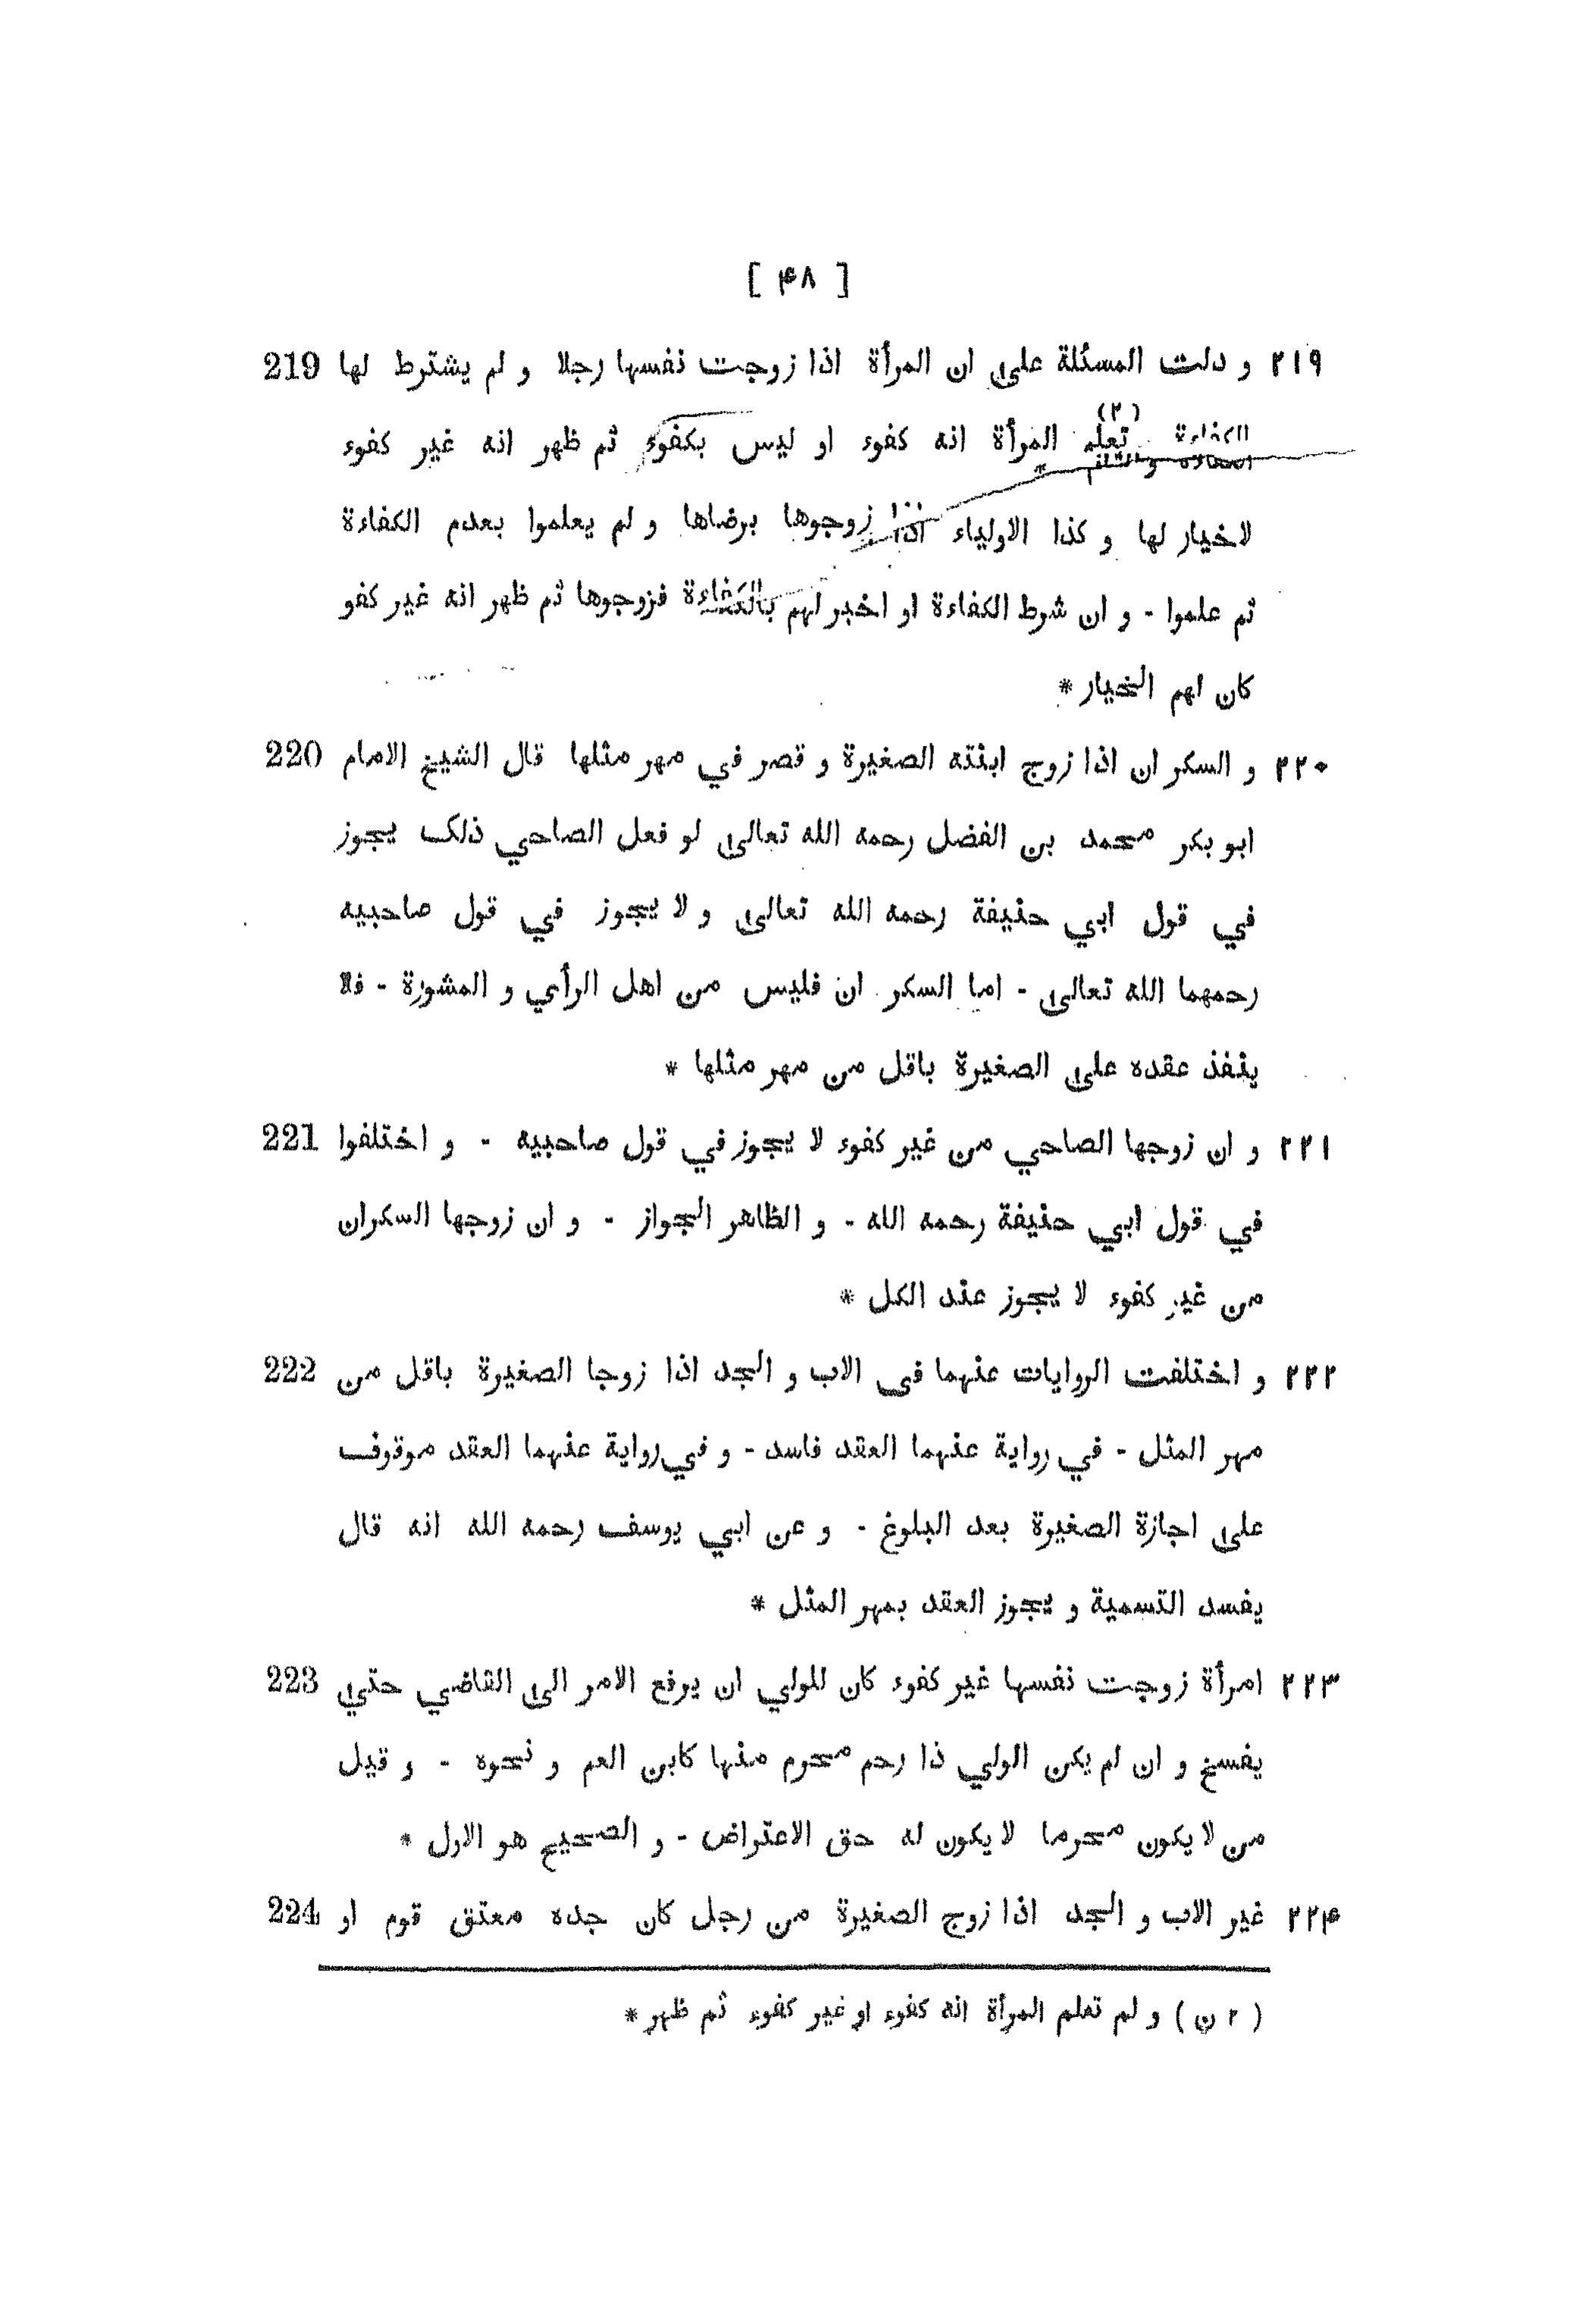 [ ۴۸ ]
۲۱۹ و دلت المسئلة على ان المرأة اذا زوجت نفسها رجلا و لم يشترط لها 219
الكفاءة تعلم (۲) المرأة انه كفوء او ليس بكفوء ثم ظهر انه غير كفوء
لاخيار لها و كذا الاولياء اذا زوجوها برضاها و لم يعلموا بعدم الكفاءة
ثم علموا - و ان شرط الكفاءة او اخبر لهم بالكفاءة فزوجوها ثم ظهر انه غير كفو
كان لهم الخيار *
۲۲۰ و السكر ان اذا زوج ابنته الصغيرة و قصر في مهر مثلها قال الشيخ الامام 220
ابو بكر محمد بن الفضل رحمه الله تعالى لو فعل الصاحي ذلك يجوز
في قول ابي حنيفة رحمه الله تعالى و لا يجوز في قول صاحبيه
رحمهما الله تعالى - اما السكر ان فليس من اهل الرأي و المشورة - فلا
ينفذ عقده على الصغيرة باقل من مهر مثلها *
۲۲۱ و ان زوجها الصاحي من غير كفوء لا يجوز في قول صاحبيه - و اختلفوا 221
في قول ابي حنيفة رحمه الله - و الظاهر الجواز - و ان زوجها السكران
من غير كفوء لا يجوز عند الكل *
۲۲۲ و اختلفت الروايات عنهما فى الاب و الجد اذا زوجا الصغيرة باقل من 222
مهر المثل - في رواية عنهما العقد فاسد - و في رواية عنهما العقد موقوف
على اجازة الصغيرة بعد البلوغ - و عن ابي يوسف رحمه الله انه قال
يفسد التسمية و يجوز العقد بمهر المثل *
۲۲۳ امرأة زوجت نفسها غير كفوء كان للولي ان يرفع الامر الى القاضي حتى 223
يفسخ و ان لم يكن الولي ذا رحم محرم منها كابن العم و نحوه - و قيل
من لا يكون محرما لا يكون له حق الاعتراض - و الصحيح هو الاول *
۲۲۴ غير الاب و الجد اذا زوج الصغيرة من رجل كان جده معتق قوم او 224
( ۲ ن ) و لم تعلم المرأة انه كفوء او غير كفوء ثم ظهر *